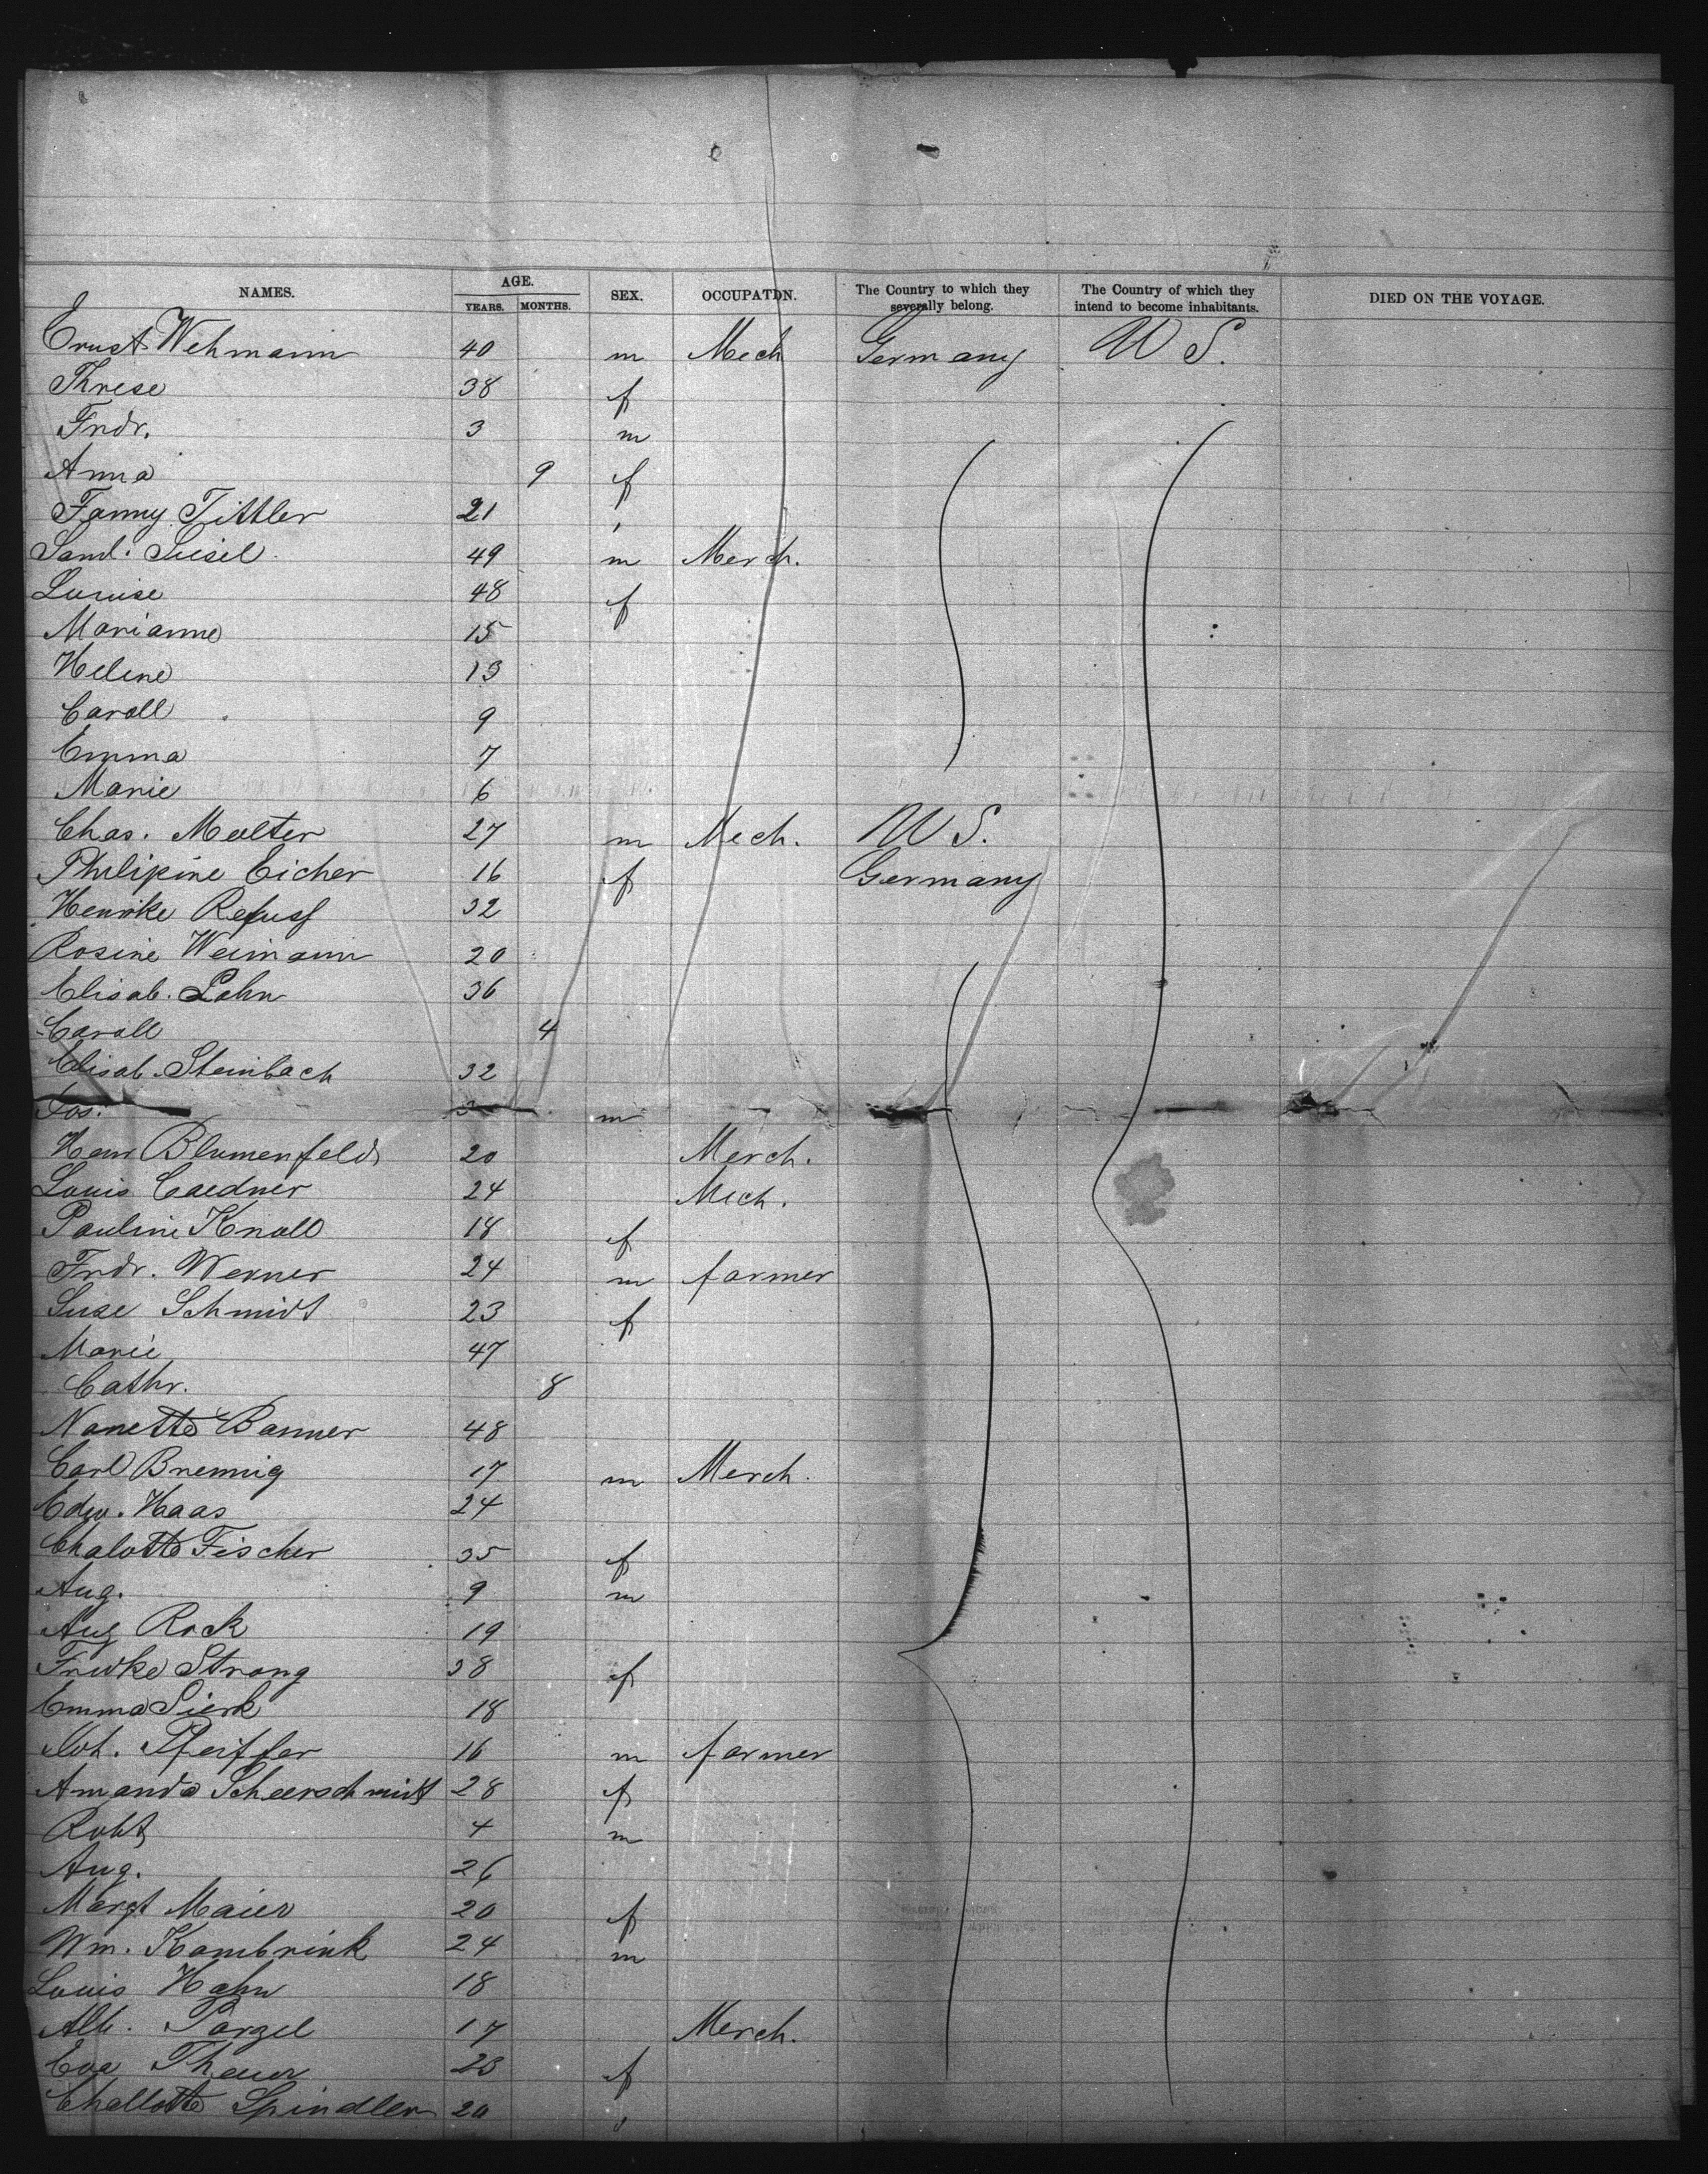 NAMES. AGE. YEARS. MONTHS. SEX. OCCUPATN. The Country to which they severally belong. The Country of which they intend to become inhabitants. DIED ON THE VOYAGE.
Ernst Wehmann 40 m Mech Germany U S.
Threse 38 f
Frdr. 3 m
Anna 9 f
Fanny Tittler 21
Saml. Susel 49 m Merch.
Louise 48 f
Marianne 15
Helene 13
Caroll 9
Emma 7
Marie 6
Chas. Molter 27 m Mech. U S.
Philipine Eicher 16 f Germany
Henrike 32
Rosine Weimann 20
Elisab. Lohn 36
Caroll 4
Elisab. Steinbach 32
Jos. m
Henr Blumenfeld 20 Merch.
Louis Caedner 24 Mech.
Pauline Knoll 18 f
Frdr. Werner 24 m farmer
Suse Schmidt 23 f
Marie 47
Cathr. 8
Nanette Banner 48
Carl Brennig 17 m Merch.
Edw. Haas 24
Chalotte Fischer 35 f
Aug. 9 m
Aug Rock 19
Fridke Strong 38 f
Emma Sierk 18
Joh. Pfeiffer 16 m farmer
Amanda Scheerschmidt 28 f
Robt 4 m
Aug. 26
Margt Maier 20 f
Wm. Kambrink 24 m
Louis Hahn 18
Alb. Porzel 17 Merch.
Eva Theuer 23 f
Challotte Spindler 20